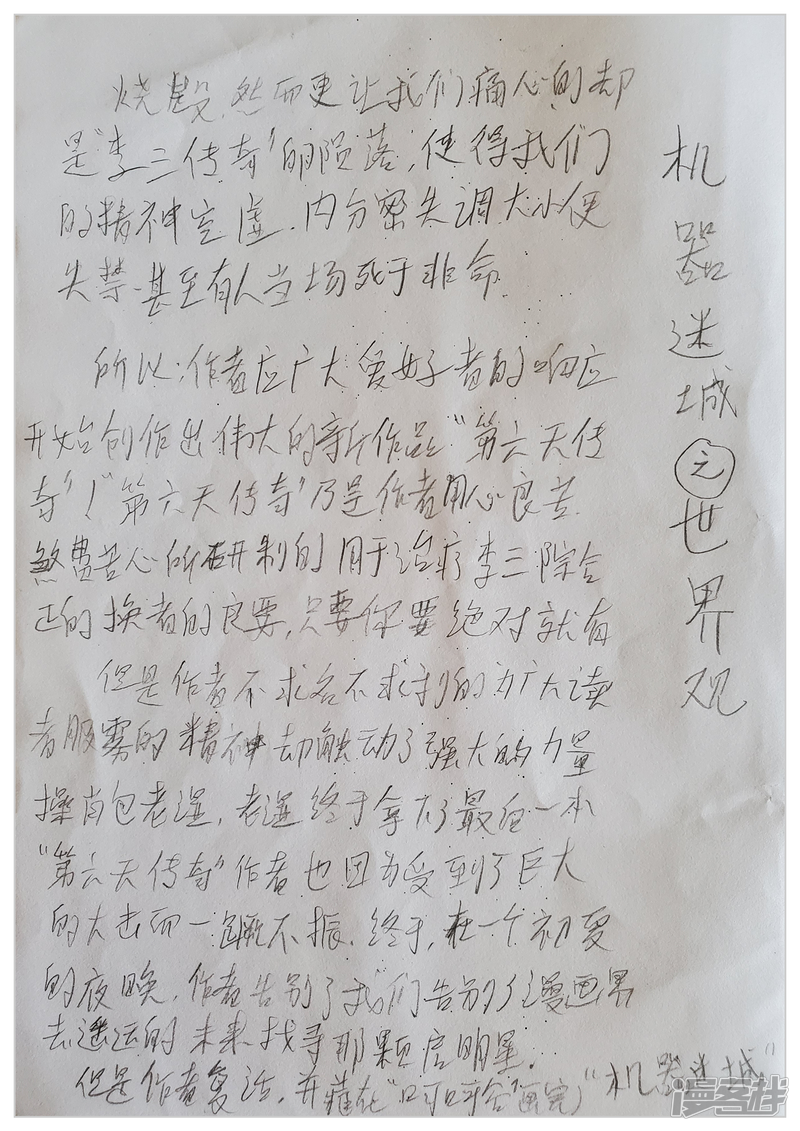 机器迷城之世界观
烧毁,然而更让我们痛心的却
是“李三传奇”的陨落,使得我们
的精神空虚.内分泌失调大小便
失禁.甚至有人当场死于非命.
所以:作者应广大爱好者的响应
开始创作出伟大的新作品:“第六天传
奇”!“第六天传奇”乃是作者用心良苦.
煞费苦心所研制的用于治疗李三综合
正的换者的良要,只要你要绝对就有
但是作者不求名不求利的为广大读
者服雾的精神却触动了强大的力量
操肖包老湿,老湿终于拿不了最后一本
“第六天传奇”作者也因为受到了巨大
的大击而一蹶不振.终于,在一个初夏
的夜晚,作者告别了我们告别了漫画界
去遥远的未来找寻那颗启明星.
但是作者复活,并藏在“画完“机器迷城”
漫客栈